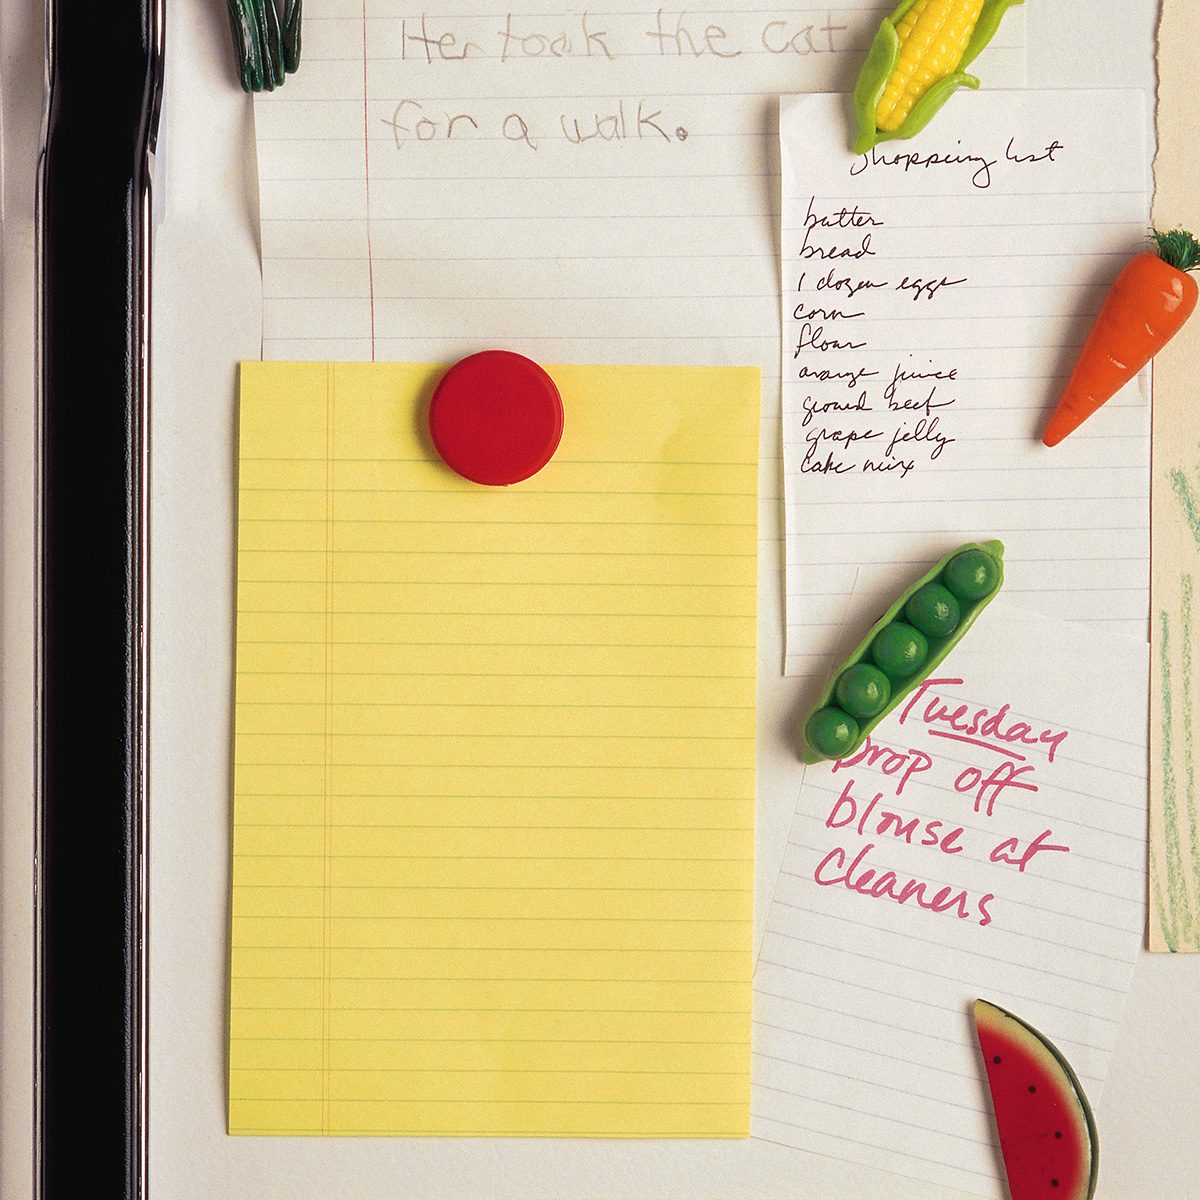 He took the cat
for a walk.
Shopping list
butter
bread
1 dozen eggs
corn
flour
orange juice
ground beef
grape jelly
cake mix
Tuesday
Drop off
blouse at
Cleaners